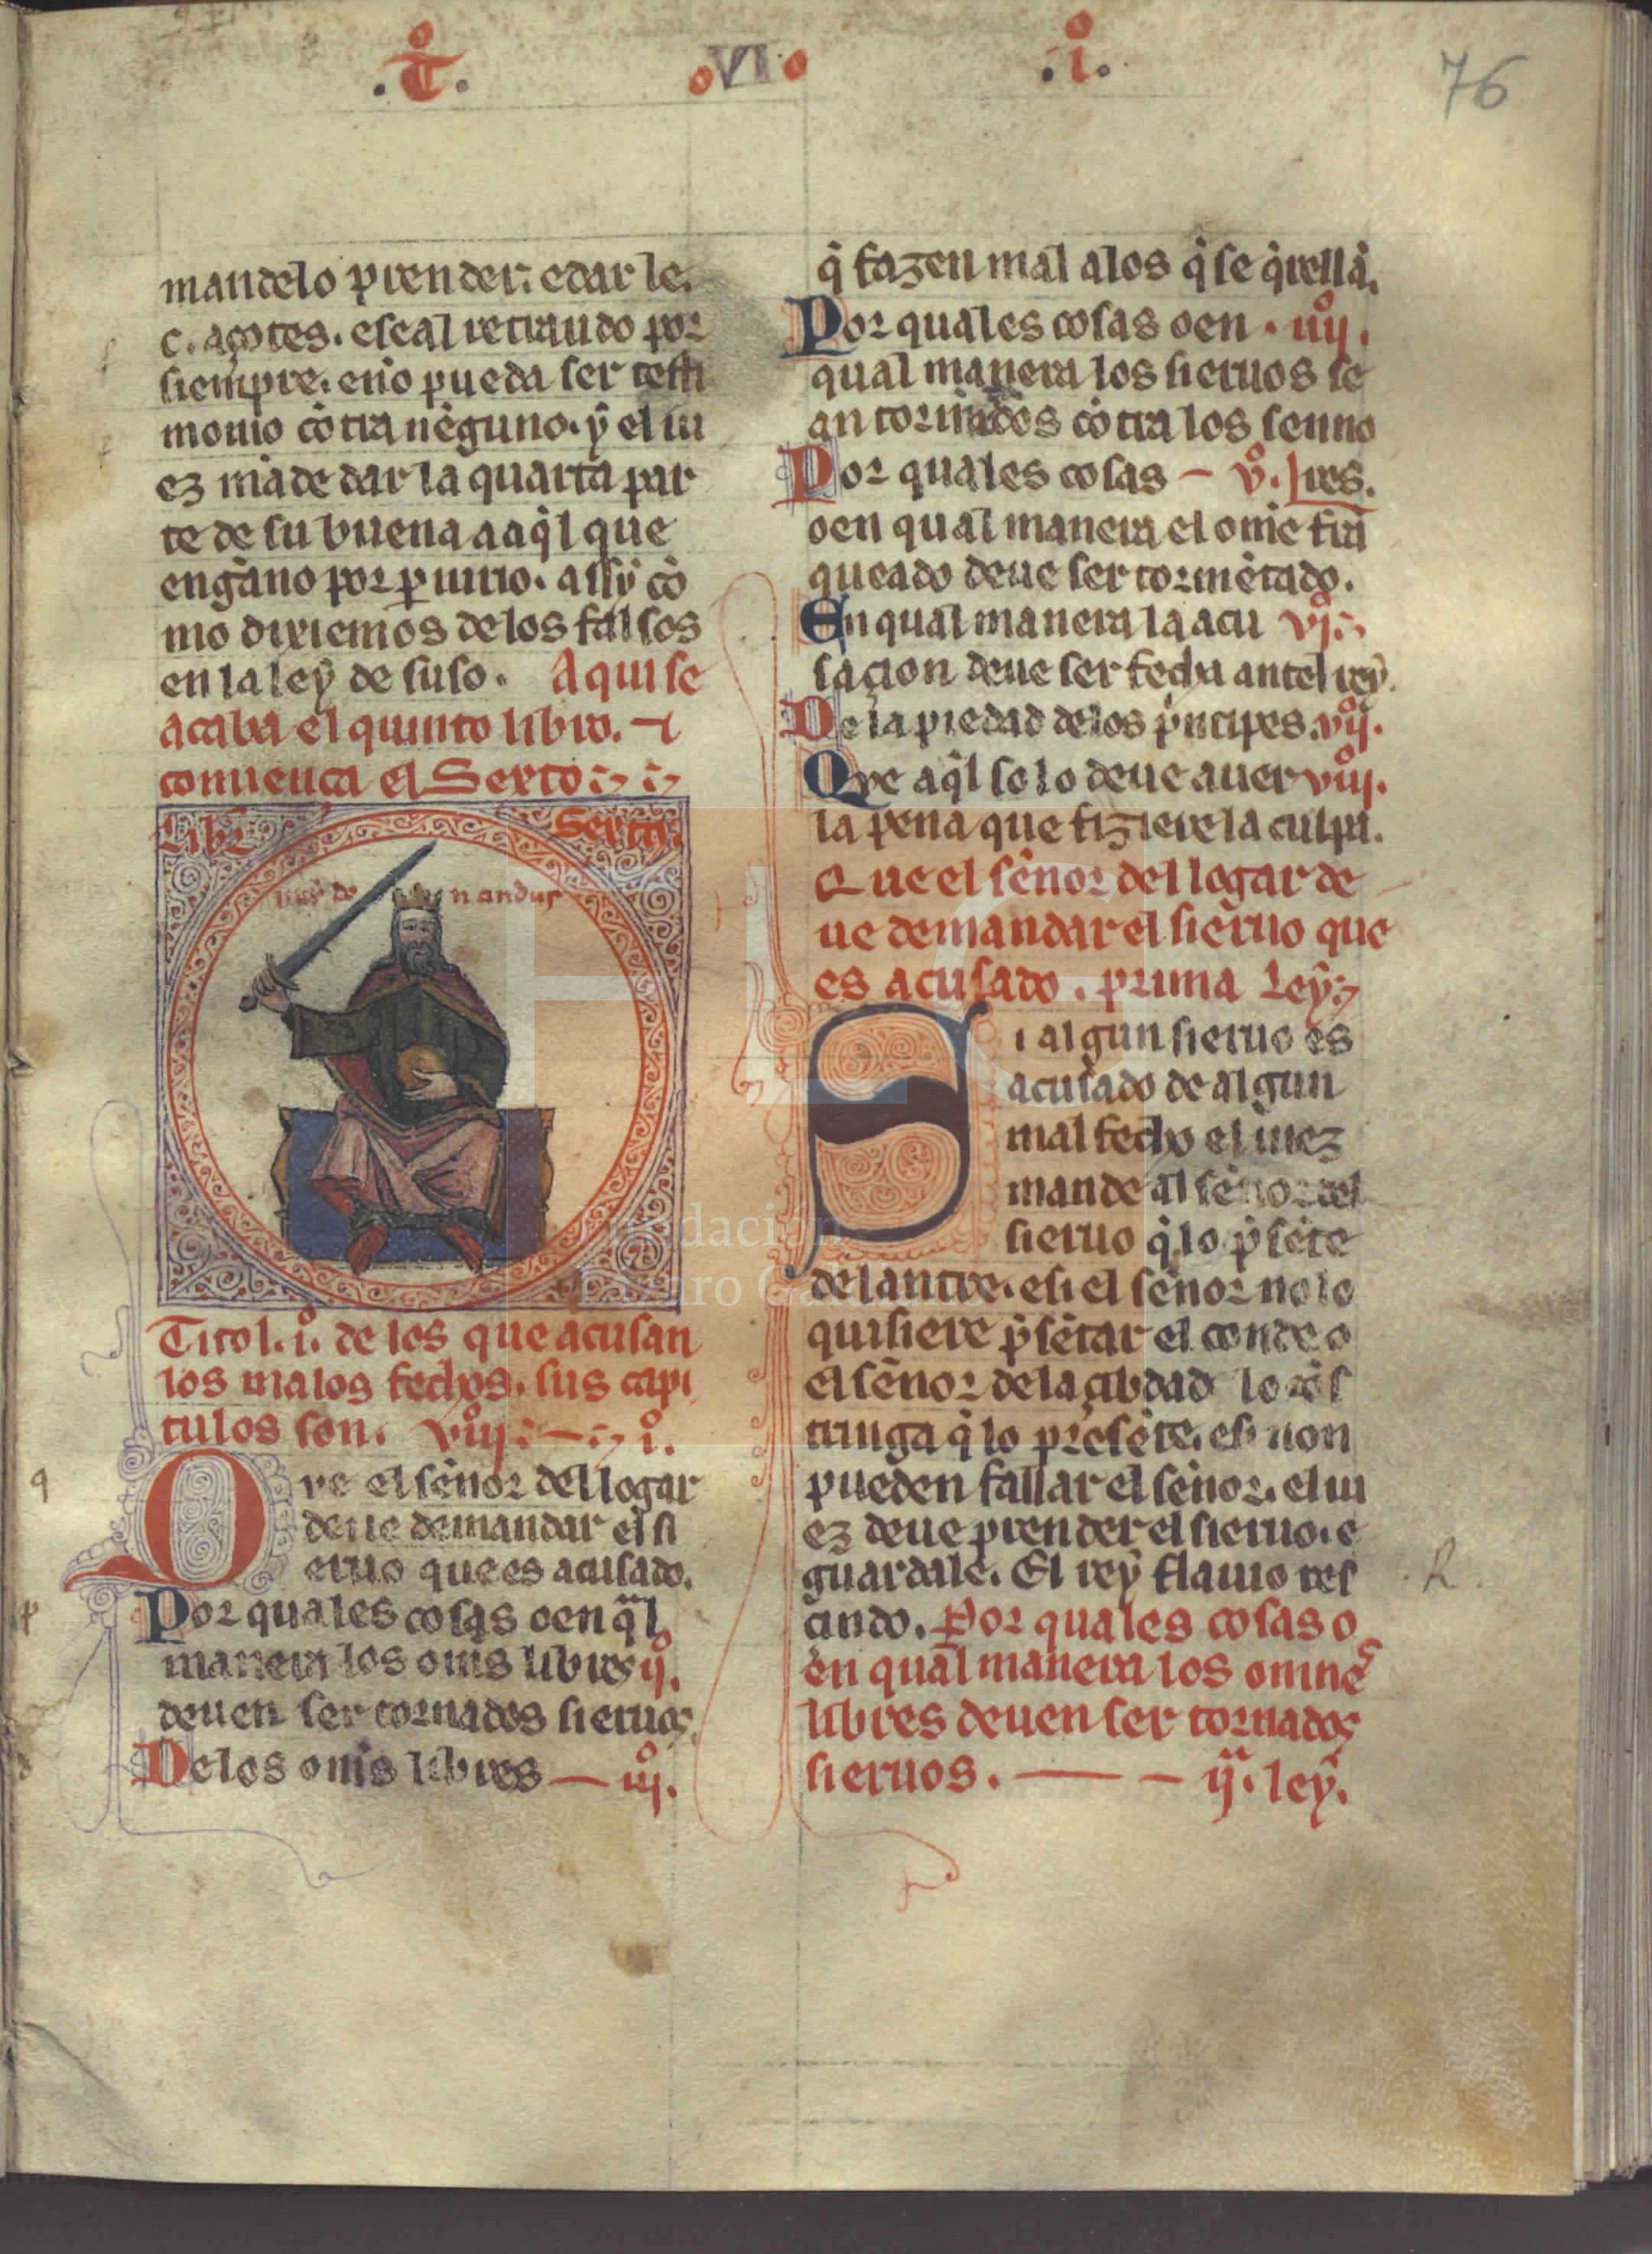 .t̊. oVIo .i̊.
76
mandelo prender: e dar le.
c. açotes. e seal retraudo por
siempre. e nõ pueda ser testi
monio cõtra nẽguno. ẏ el iu
ez mãde dar la quarta par
te de su buena a aq̃l que
engãno por periurio. assẏ cõ
mo dixiemos de los falsos
en la leẏ de suso. Aqui se
acaba el quinto libro. ⁊
comiença el Sexto
Sexto
nandus
Titol. i̊. de los que acusan
los malos fechos. sus capi
tulos son. viij̊. i̊.
Que el sẽnor del logar
deue demandar el si
eruo que es acusado.
Por quales cosas o en q̃l
manera los om̃s libres ij̊.
deuen ser tornados sieruos.
De los om̃s libres — iij̊.
q̃ fazen mal a los q̃ se q̃rellã.
Por quales cosas o en . iiij̊.
qual manera los sieruos se
an tormẽtados cõtra los senno
Por quales cosas — v̊. res.
o en qual manera el ome frã
queado deue ser tormẽtado.
En qual manera la acu vj̊.
saçion deue ser fecha antel reẏ.
De la piedad de los p̃ncipes. vij̊.
Que aq̃l solo deue auer viij̊.
la pena que fiziere la culpa.
Que el sẽnor del logar de
ue demandar el sieruo que
es acusado. prima leẏ.
Si algun sieruo es
acusado de algun
mal fecho el iuez
mande al sẽnor del
sieruo q̃ lo p̃sẽte
delantre. e si el sẽnor no lo
quisiere p̃sẽtar el conde o
el sẽnor de la çibdad lo cõs
tringa q̃ lo presẽte. e si non
pueden fallar el sẽnor. el iu
ez deue prender el sieruo. e
guardale. El reẏ flauio res
cindo. Por quales cosas o
en qual manera los omnes
libres deuen ser tornados
sieruos. — — ij̊. leẏ.
R.
FLG
Fundación
Lázaro Galdiano